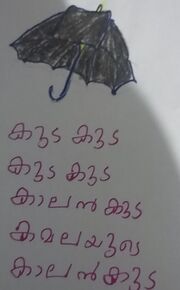 കുട കുട
കുട കുട
കാലൻ കുട
കമലയുടെ
കാലൻകുട